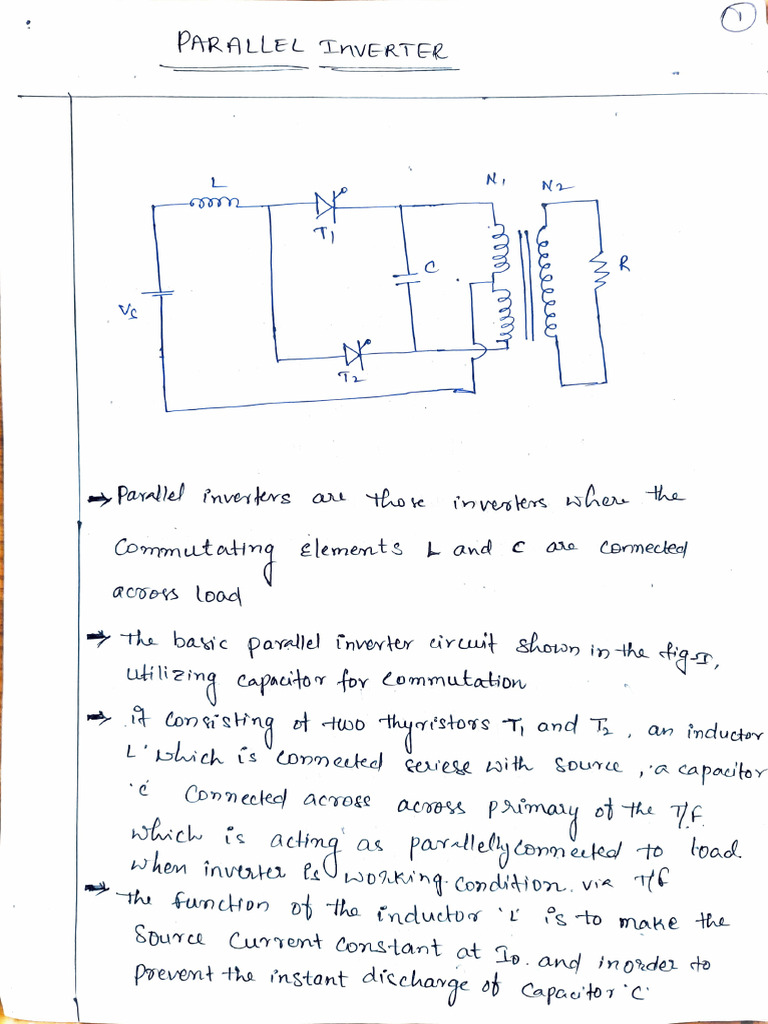 1
PARALLEL INVERTER
L
N1 N2
T1
C
R
Vs
T2
→ Parallel inverters are those inverters where the
Commutating elements L and C are connected
across load
→ the basic parallel inverter circuit shown in the fig-I,
utilizing capacitor for commutation
→ it consisting of two thyristors T1 and T2, an inductor
L' which is connected seriese with source, a capacitor
'c' connected across across primary of the T/F.
which is acting as parallelly connected to load.
when inverter is working condition. via T/F
→ the function of the inductor 'L' is to make the
source current constant at Io. and inorder to
prevent the instant discharge of capacitor 'C'